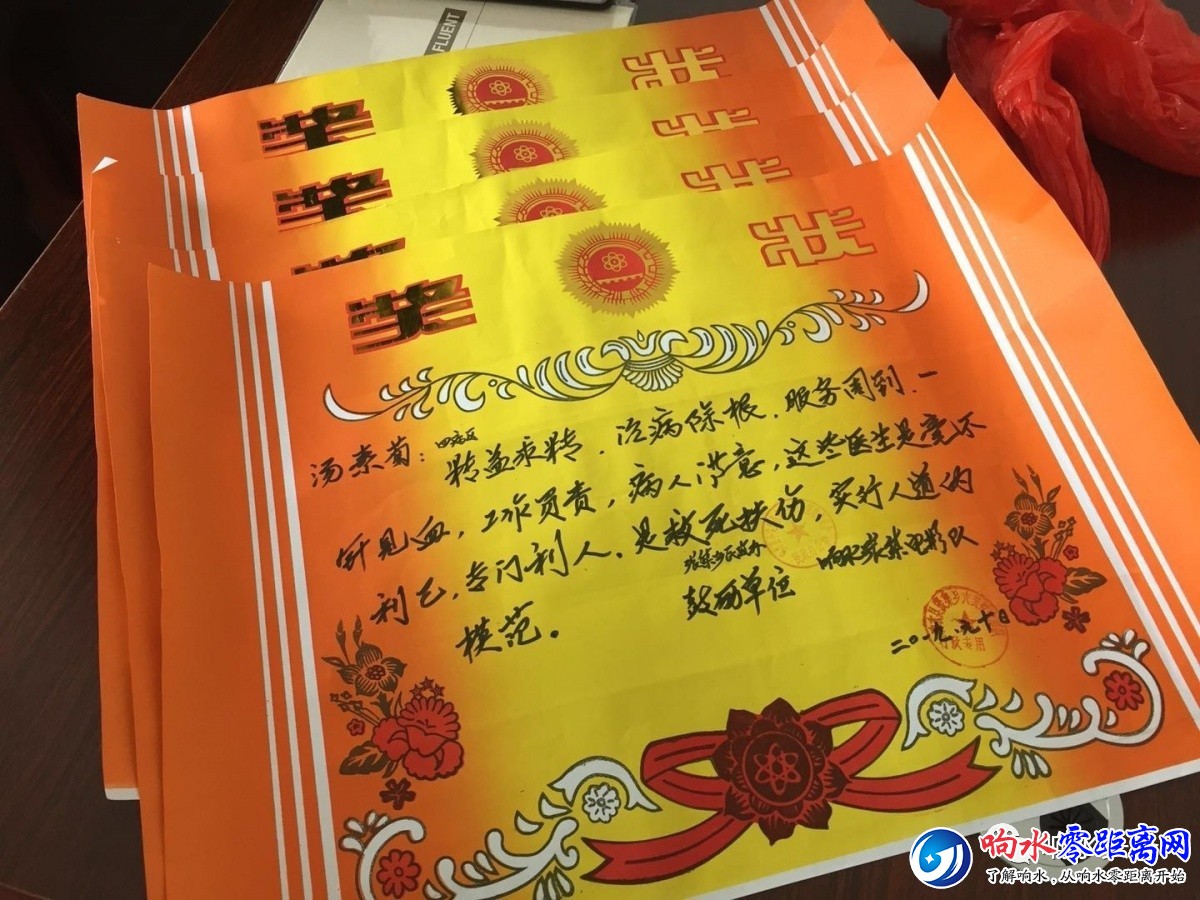 FLUENT
奖 状
奖 状
奖 状
奖 状
汤素菊：四病区
精益求精，治病除根，服务周到，一
针见血，工作负责，病人满意，这些医生是毫不
利己，专门利人，是救死扶伤，实行人道的
模范。
鼓励单位
响水张集电影队
二〇一九、九十日
响水零距离网
了解响水，从响水零距离开始